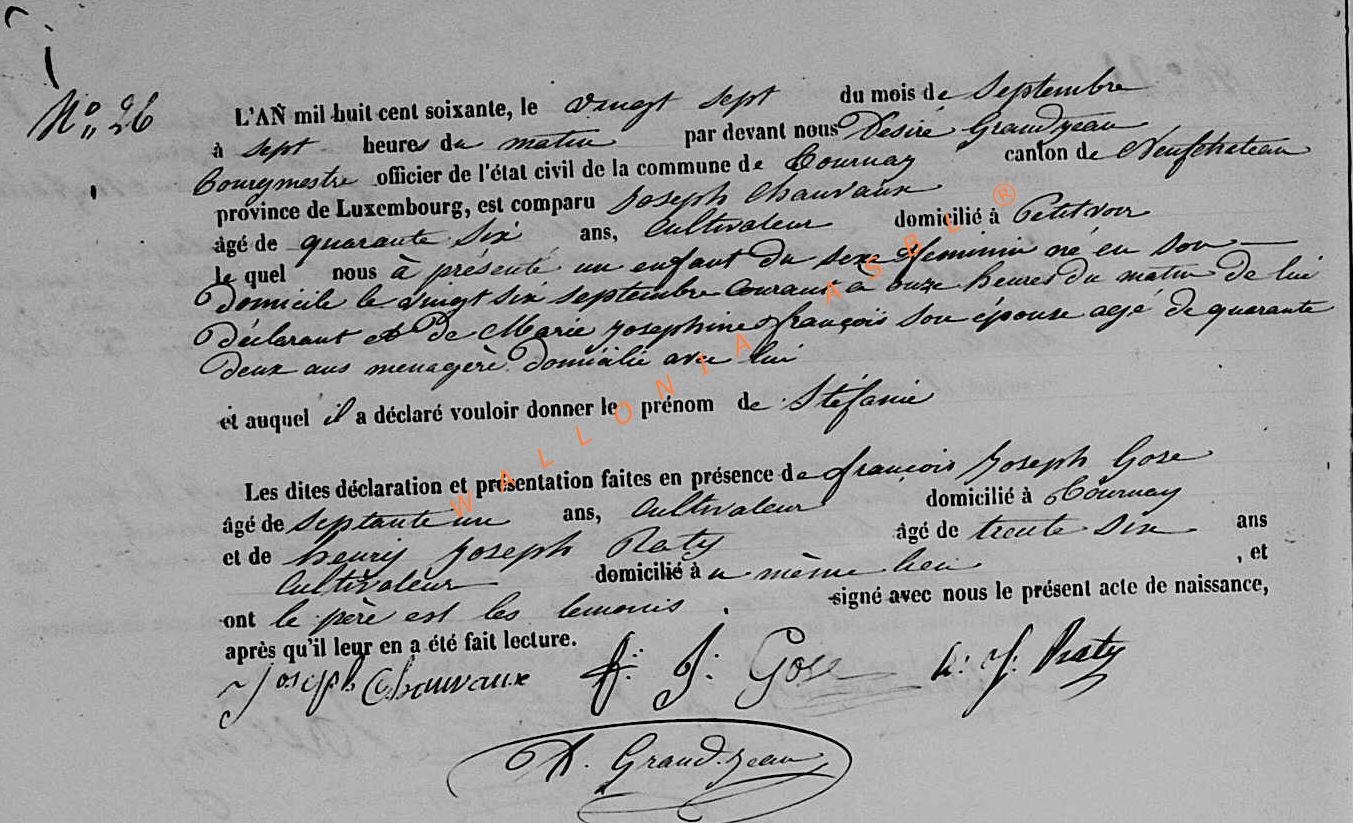 No 26
L'AN mil huit cent soixante, le vingt sept du mois de Septembre
à sept heures du matin par devant nous Désiré Grandjean
Bourgmestre officier de l'état civil de la commune de Tournay canton de Neufchateau
province de Luxembourg, est comparu Joseph Chauvaux
âgé de quarante six ans, Cultivateur domicilié à Petitvoir
le quel nous à présenté un enfant du sexe féminin né en son
domicile le vingt six septembre Courant à onze heures du matin de lui
déclarant et de Marie Josephine françois son épouse agé de quarante
deux ans menagère domicilié avec lui
et auquel il a déclaré vouloir donner le prénom de Stéfanie
Les dites déclaration et présentation faites en présence de françois Joseph Gose
âgé de septante un ans, Cultivateur domicilié à Tournay
et de henry Joseph Raty âgé de trente six ans
Cultivateur domicilié au même lieu , et
ont le père est les temouis . signé avec nous le présent acte de naissance,
après qu'il leur en a été fait lecture.
Joseph Chauvaux f: J: Gose h: J: Raty
D. Grandjean
WALLONIA ASBL ®